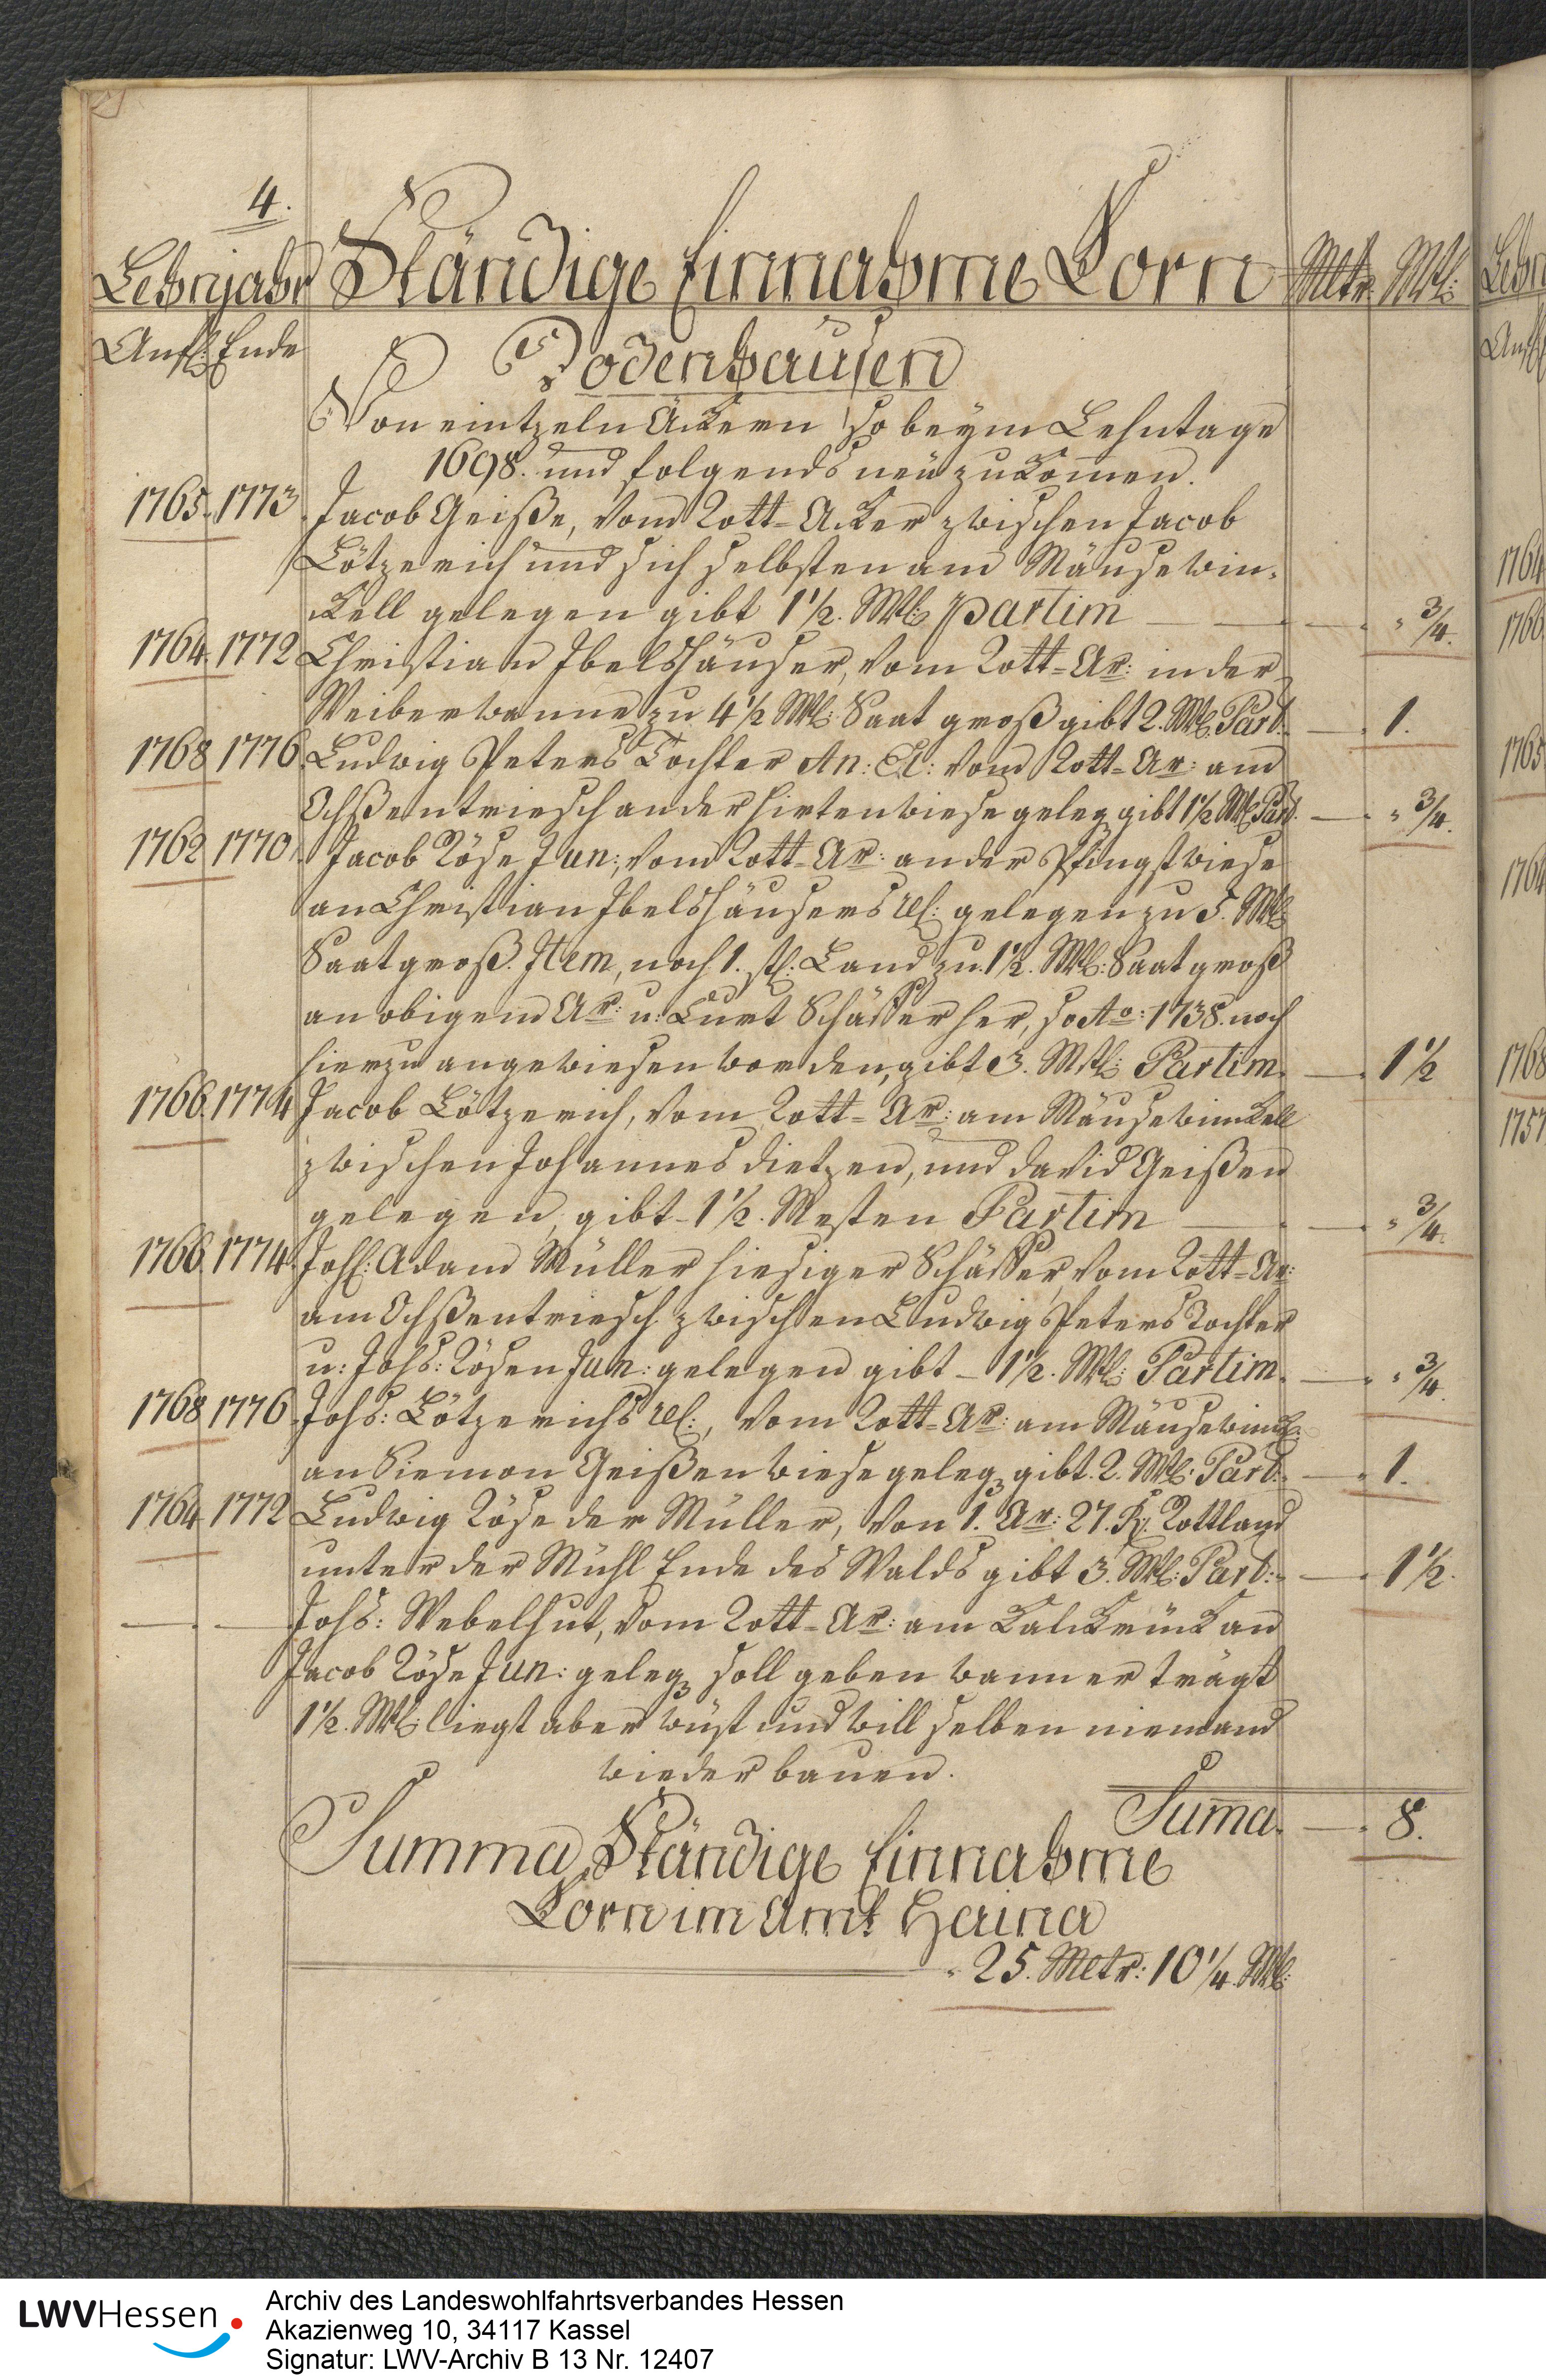 4.
Lehnjahr Ständige Einnahme Korn Mltr. Mtl:
Anf: Ende
Dodenhausen
Von eintzeln Äckern so beym Lehntage
1698. und folgends neü zukom̄en.
1765. 1773 Jacob Geiße, vom Rott-Acker zwischen Jacob
Lötzerich und sich selbsten am Mäusewin-
ckell gelegen gibt 1½. Mtl: partim " ¾.
1764. 1772 Christian Ibelshäuser, vom Rott-Ar: in der
Weiberwanne zu 4½ Mtl: Saat groß gibt 2. Mtl: Part: 1.
1768 1776 Ludwig Peters Tochter An: El: vom Rott-Ar: am
Ochßentriesch an der Hirtenwiese geleg gibt 1½ Mtl: Part. " ¾.
1762 1770 Jacob Röse Jun:, vom Rott-Ar: an der Pfingstwiese
an Christian Ibelshäusers rel: gelegen zu 5. Mtl:
Saat groß. Item, noch 1. stl: Land zu 1½. Mtl: Saat groß
an obigem Ar: u: Curt Schäffer her, so Ao: 1738. noch
hierzu angewiesen worden, gibt 3. Mtl: Partim. 1½
1766. 1774 Jacob Lötzerich, vom Rott-Ar: am Mäusewinckell
zwischen Johannes Dietzen, und David Geißen
gelegen, gibt - 1½. Mesten Partim " ¾.
1766 1774. Joh: Adam Müller hiesiger Schäffer, vom Rott-Ar:
am Ochßentriesch zwischen Ludwig Peters Tochter
u: Johs: Rösen Jun: gelegen gibt - 1½. Mtl: Partim. " ¾.
1768 1776. Johs: Lötzerichs rel:, vom Rott-Ar: am Mäusewinck:
an Siemon Geißen wiese geleg gibt. 2. Mtl: Part: 1.
1764 1772 Ludwig Röse der Müller, von 1. Ar: 27. R: Rottland
unter der Mühl Ende des Walds gibt 3. Mtl: Part: 1½.
Johs: Webelhut, vom Rott-Ar: am an
Jacob Röse Jun: geleg soll geben wann er trägt
1½. Mtl: liegt aber wüst und will selben niemand
wieder bauen.
Sum̄a. 8.
Summa Ständige Einnahme
Korn im Amt Haina
25. Mltr: 10¼. Mtl:
Lehn
Anf
1764
1766
1765
1764
1768
1757
LWVHessen
Archiv des Landeswohlfahrtsverbandes Hessen
Akazienweg 10, 34117 Kassel
Signatur: LWV-Archiv B 13 Nr. 12407